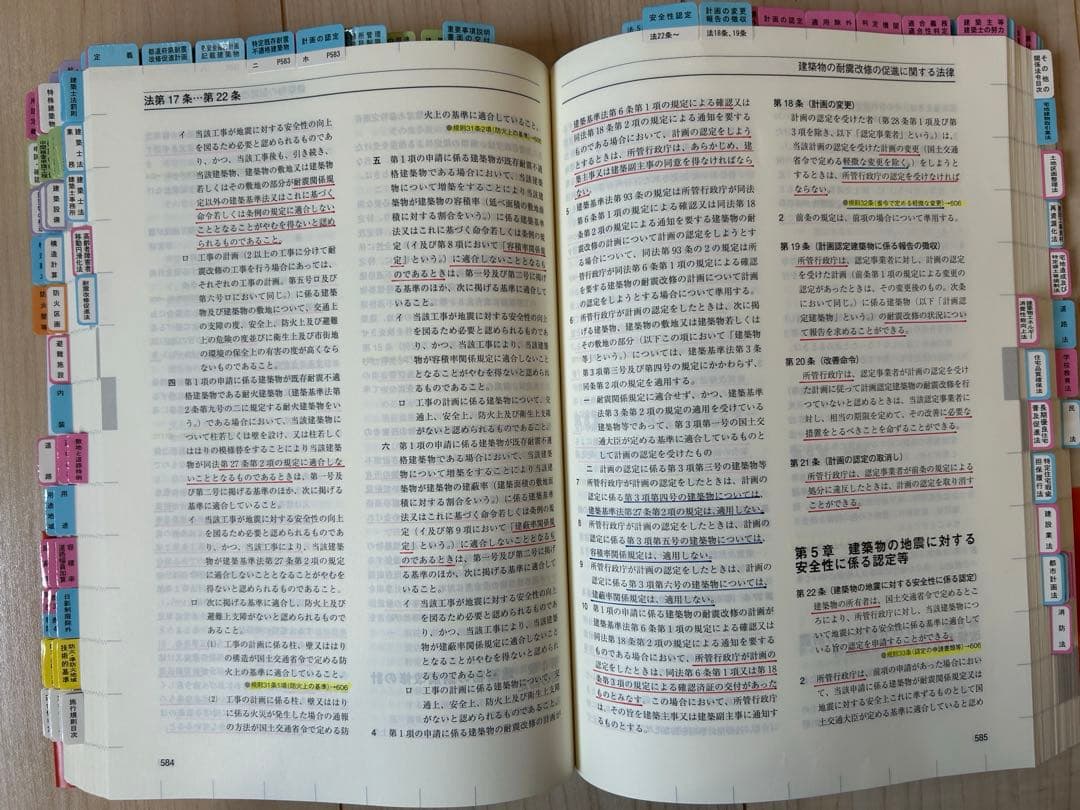 定義
都道府県耐震
改修促進計画
記載建築物
特定既存耐震
不適格建築物
計画の認定
ニ P583 ホ P583
重要事項説明
書面の交付
安全性認定
計画の変更
報告の徴収
計画の認定
適用除外
判定機関
適合義務
適合性判定
建築主等
建築士の努力
法22条〜
法18条、19条
法第17条…第22条
イ 当該工事が地震に対する安全性の向上
を図るため必要と認められるものであ
り、かつ、当該工事後も、引き続き、
当該建築物、建築物の敷地又は建築物
若しくはその敷地の部分が耐震関係規
定以外の建築基準法又はこれに基づく
命令若しくは条例の規定に適合しない
こととなることがやむを得ないと認め
られるものであること。
ロ 工事の計画（2以上の工事に分けて耐
震改修の工事を行う場合にあっては、
それぞれの工事の計画。第五号ロ及び
第六号ロにおいて同じ。）に係る建築
物及び建築物の敷地について、交通上
の支障の度、安全上、防火上及び避難
上の危険の度並びに衛生上及び市街地
の環境の保全上の有害の度が高くなら
ないものであること。
四 第1項の申請に係る建築物が既存耐震不適
格建築物である耐火建築物（建築基準法第
2条第九号の二に規定する耐火建築物をい
う。）である場合において、当該建築物に
ついて柱若しくは壁を設け、又は柱若しく
ははりの模様替をすることにより当該建築
物が同法第27条第2項の規定に適合しな
いこととなるものであるときは、第一号及
び第二号に掲げる基準のほか、次に掲げる
基準に適合していること。
イ 当該工事が地震に対する安全性の向上
を図るため必要と認められるものであ
り、かつ、当該工事により、当該建築
物が建築基準法第27条第2項の規定
に適合しないこととなることがやむを
得ないと認められるものであること。
ロ 次に掲げる基準に適合し、防火上及び
避難上支障がないと認められるもので
あること。
⑴ 工事の計画に係る柱、壁又ははり
の構造が国土交通省令で定める防
火上の基準に適合していること。
●規則31条1項（防火上の基準）→606
⑵ 工事の計画に係る柱、壁又ははり
に係る火災が発生した場合の通報
の方法が国土交通省令で定める防
584
火上の基準に適合していること。
●規則31条2項（防火上の基準）→606
五 第1項の申請に係る建築物が既存耐震不適
格建築物である場合において、当該建築物
について増築をすることにより当該建築物
が建築物の容積率（延べ面積の敷地面積に
対する割合をいう。）に係る建築基準法又
はこれに基づく命令若しくは条例の規
定（イ及び第8項において「容積率関係規
定」という。）に適合しないこととなるも
のであるときは、第一号及び第二号に掲げ
る基準のほか、次に掲げる基準に適合して
いること。
イ 当該工事が地震に対する安全性の向上
を図るため必要と認められるものであ
り、かつ、当該工事により、当該建築
物が容積率関係規定に適合しないこと
となることがやむを得ないと認められ
るものであること。
ロ 工事の計画に係る建築物について、交
通上、安全上、防火上及び衛生上支障
がないと認められるものであること。
六 第1項の申請に係る建築物が既存耐震不適
格建築物である場合において、当該建築物
について増築をすることにより当該建築
物が建築物の建蔽率（建築面積の敷地面
積に対する割合をいう。）に係る建築基準
法又はこれに基づく命令若しくは条例の規
定（イ及び第9項において「建蔽率関係規
定」という。）に適合しないこととなるも
のであるときは、第一号及び第二号に掲げ
る基準のほか、次に掲げる基準に適合して
いること。
イ 当該工事が地震に対する安全性の向上
を図るため必要と認められるものであ
り、かつ、当該工事により、当該建築
物が建蔽率関係規定に適合しないこと
となることがやむを得ないと認められ
るものであること。
ロ 工事の計画に係る建築物について、交
通上、安全上、防火上及び衛生上支障
がないと認められるものであること。
4 第1項の申請に係る建築物の耐震改修の計画が
建築物の耐震改修の促進に関する法律
建築基準法第6条第1項の規定による確認又は
同法第18条第2項の規定による通知を要する
ものである場合において、計画の認定をしよう
とするときは、所管行政庁は、あらかじめ、建
築主事又は建築副主事の同意を得なければなら
ない。
5 建築基準法第93条の規定は所管行政庁が同法
第6条第1項の規定による確認又は同法第18
条第2項の規定による通知を要する建築物の耐
震改修の計画について計画の認定をしようとす
る場合について、同法第93条の2の規定は所
管行政庁が同法第6条第1項の規定による確認
を要する建築物の耐震改修の計画について計画
の認定をしようとする場合について準用する。
6 所管行政庁が計画の認定をしたときは、次に掲
げる建築物、建築物の敷地又は建築物若しくは
その敷地の部分（以下この項において「建築物
等」という。）については、建築基準法第3条
第3項第三号及び第四号の規定にかかわらず、
同条第2項の規定を適用する。
一 耐震関係規定に適合せず、かつ、建築基準
法第3条第2項の規定の適用を受けている
建築物等であって、第3項第一号の国土交
通大臣が定める基準に適合しているものと
して計画の認定を受けたもの
二 計画の認定に係る第3項第三号の建築物等
7 所管行政庁が計画の認定をしたときは、計画の
認定に係る第3項第四号の建築物については、
建築基準法第27条第2項の規定は、適用しない。
8 所管行政庁が計画の認定をしたときは、計画の
認定に係る第3項第五号の建築物については、
容積率関係規定は、適用しない。
9 所管行政庁が計画の認定をしたときは、計画の
認定に係る第3項第六号の建築物については、
建蔽率関係規定は、適用しない。
10 第1項の申請に係る建築物の耐震改修の計画が
建築基準法第6条第1項の規定による確認又は
同法第18条第2項の規定による通知を要する
ものである場合において、所管行政庁が計画の
認定をしたときは、同法第6条第1項又は第18
条第3項の規定による確認済証の交付があった
ものとみなす。この場合において、所管行政庁
は、その旨を建築主事又は建築副主事に通知す
るものとする。
第18条（計画の変更）
計画の認定を受けた者（第28条第1項及び第
3項を除き、以下「認定事業者」という。）は、
当該計画の認定を受けた計画の変更（国土交通
省令で定める軽微な変更を除く。）をしようと
するときは、所管行政庁の認定を受けなければ
ならない。
●規則32条（省令で定める軽微な変更）→606
2 前条の規定は、前項の場合について準用する。
第19条（計画認定建築物に係る報告の徴収）
所管行政庁は、認定事業者に対し、計画の認定
を受けた計画（前条第1項の規定による変更の
認定があったときは、その変更後のもの。次条
において同じ。）に係る建築物（以下「計画認定
建築物」という。）の耐震改修の状況につい
て報告を求めることができる。
第20条（改善命令）
所管行政庁は、認定事業者が計画の認定を受け
た計画に従って計画認定建築物の耐震改修を行
っていないと認めるときは、当該認定事業者に
対し、相当の期限を定めて、その改善に必要な
措置をとるべきことを命ずることができる。
第21条（計画の認定の取消し）
所管行政庁は、認定事業者が前条の規定による
処分に違反したときは、計画の認定を取り消す
ことができる。
第5章 建築物の地震に対する
安全性に係る認定等
第22条（建築物の地震に対する安全性に係る認定）
建築物の所有者は、国土交通省令で定めるとこ
ろにより、所管行政庁に対し、当該建築物につ
いて地震に対する安全性に係る基準に適合して
いる旨の認定を申請することができる。
●規則33条（認定の申請書類等）→606
2 所管行政庁は、前項の申請があった場合におい
て、当該申請に係る建築物が耐震関係規定又は
地震に対する安全上これに準ずるものとして国
土交通大臣が定める基準に適合していると認め
585
建築士法罰則
特殊建築物
建築士法
業務
建築士法
建築士事務所
建築設備
高齢者障害者
移動円滑化法
構造計算
耐震改修促進法
防火区画
防火壁等
避難施設
内装
敷地と道路特例
道路
用途
用途地域
容積率
日影制限除外
防火・準防火地域
技術的基準
施行規則目次
その他の
関係法令目次
宅地建物取引業法
土地区画整理法
建築物エネルギー
消費性能向上法
道路法
住宅品質確保法
学校教育法
長期優良住宅
普及促進法
民法
特定住宅瑕疵
担保履行法
建設業法
都市計画法
消防法